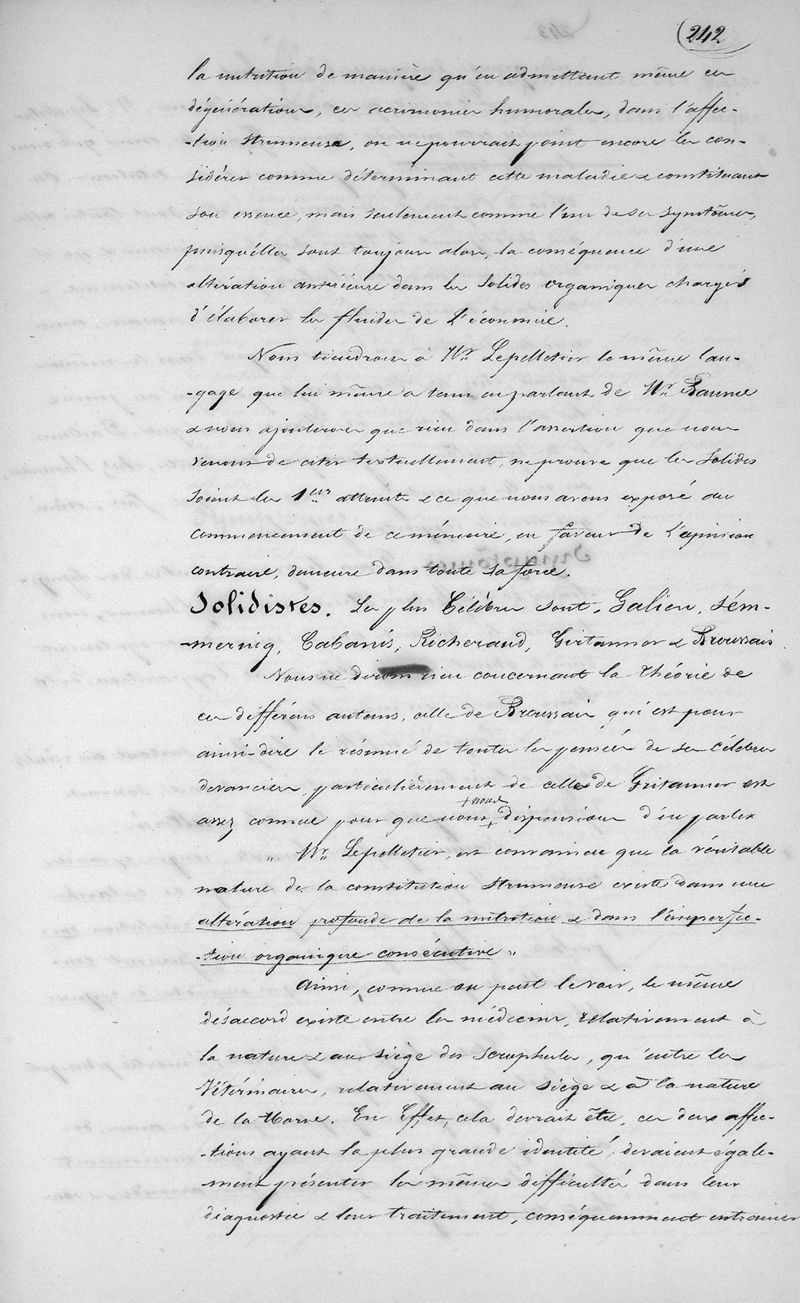 242
la nutrition de manière qu'en admettant même ces
dégénérations, ces acrimonies humorales, dans l'affec-
-tion strumeuse, on ne pourrait point encore les con-
sidérer comme déterminant cette maladie & constituant
son essence, mais seulement comme l'un de ses symptômes,
puisqu'elles sont toujours alors, la conséquence d'une
altération antérieure dans les solides organiques chargés
d'élaborer les fluides de l'économie.
Nous tiendrons à Mr. Lepelletier le même lan-
-gage que lui même a tenu en parlant de Mr. Baume
& nous ajouterons que rien dans l'assertion que nous
venons de citer textuellement, ne prouve que les solides
soient les 1ers atteints & ce que nous avons exposé au
commencement de ce mémoire, en faveur de l'opinion
contraire, demeure dans toute sa force.
Solidistes. Les plus célèbres sont, Galien, Sém-
-mering, Cabanis, Richerand, Girtanner & Broussais
Nous ne dirons rien concernant la théorie de
ces différens auteurs, celle de Broussais qui est pour
ainsi-dire le résumé de toutes les pensées de ses célèbres
devanciers, particulièrement de celles de Girtanner est
+ nous
assez connue pour que nous + dispensions d'en parler
" Mr. Lepelletier, est convaincu que la véritable
nature de la constitution strumeuse existe dans une
altération profonde de la nutrition & dans l'imperfec-
-tion organique consécutive "
Ainsi, comme on peut le voir, le même
désaccord existe entre les médecins, relativement à
la nature & au siège des scrophules, qu'entre les
Vétérinaires, relativement au siège & à la nature
de la Morve. En Effet, cela devrait être, ces deux affec-
-tions ayant la plus grande identité, devaient égale-
-ment présenter les mêmes difficultés dans leur
diagnostic & leur traitement, conséquemment entraîner